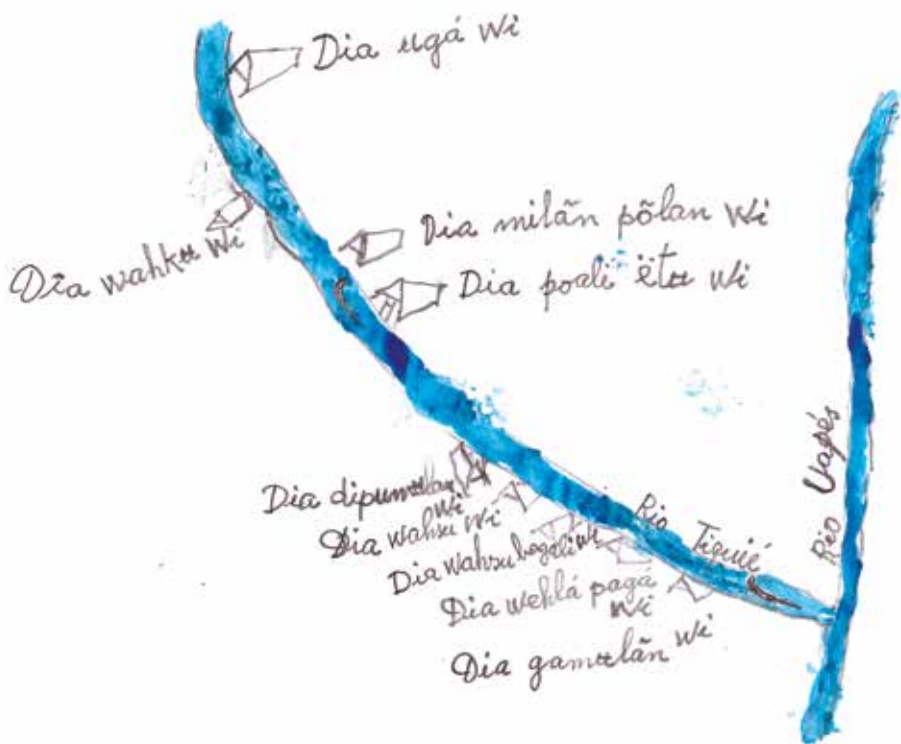 Dia ugá wi
Dia wahkʉ wi
Dia milãn põlan wi
Dia poali ëtʉ wi
Dia dipumʉlan wi
Dia wahsu wi
Dia wahsubogali wi
Dia wehlá pagá wi
Dia gamʉlãn wi
Rio Tiquié
Rio Uapés